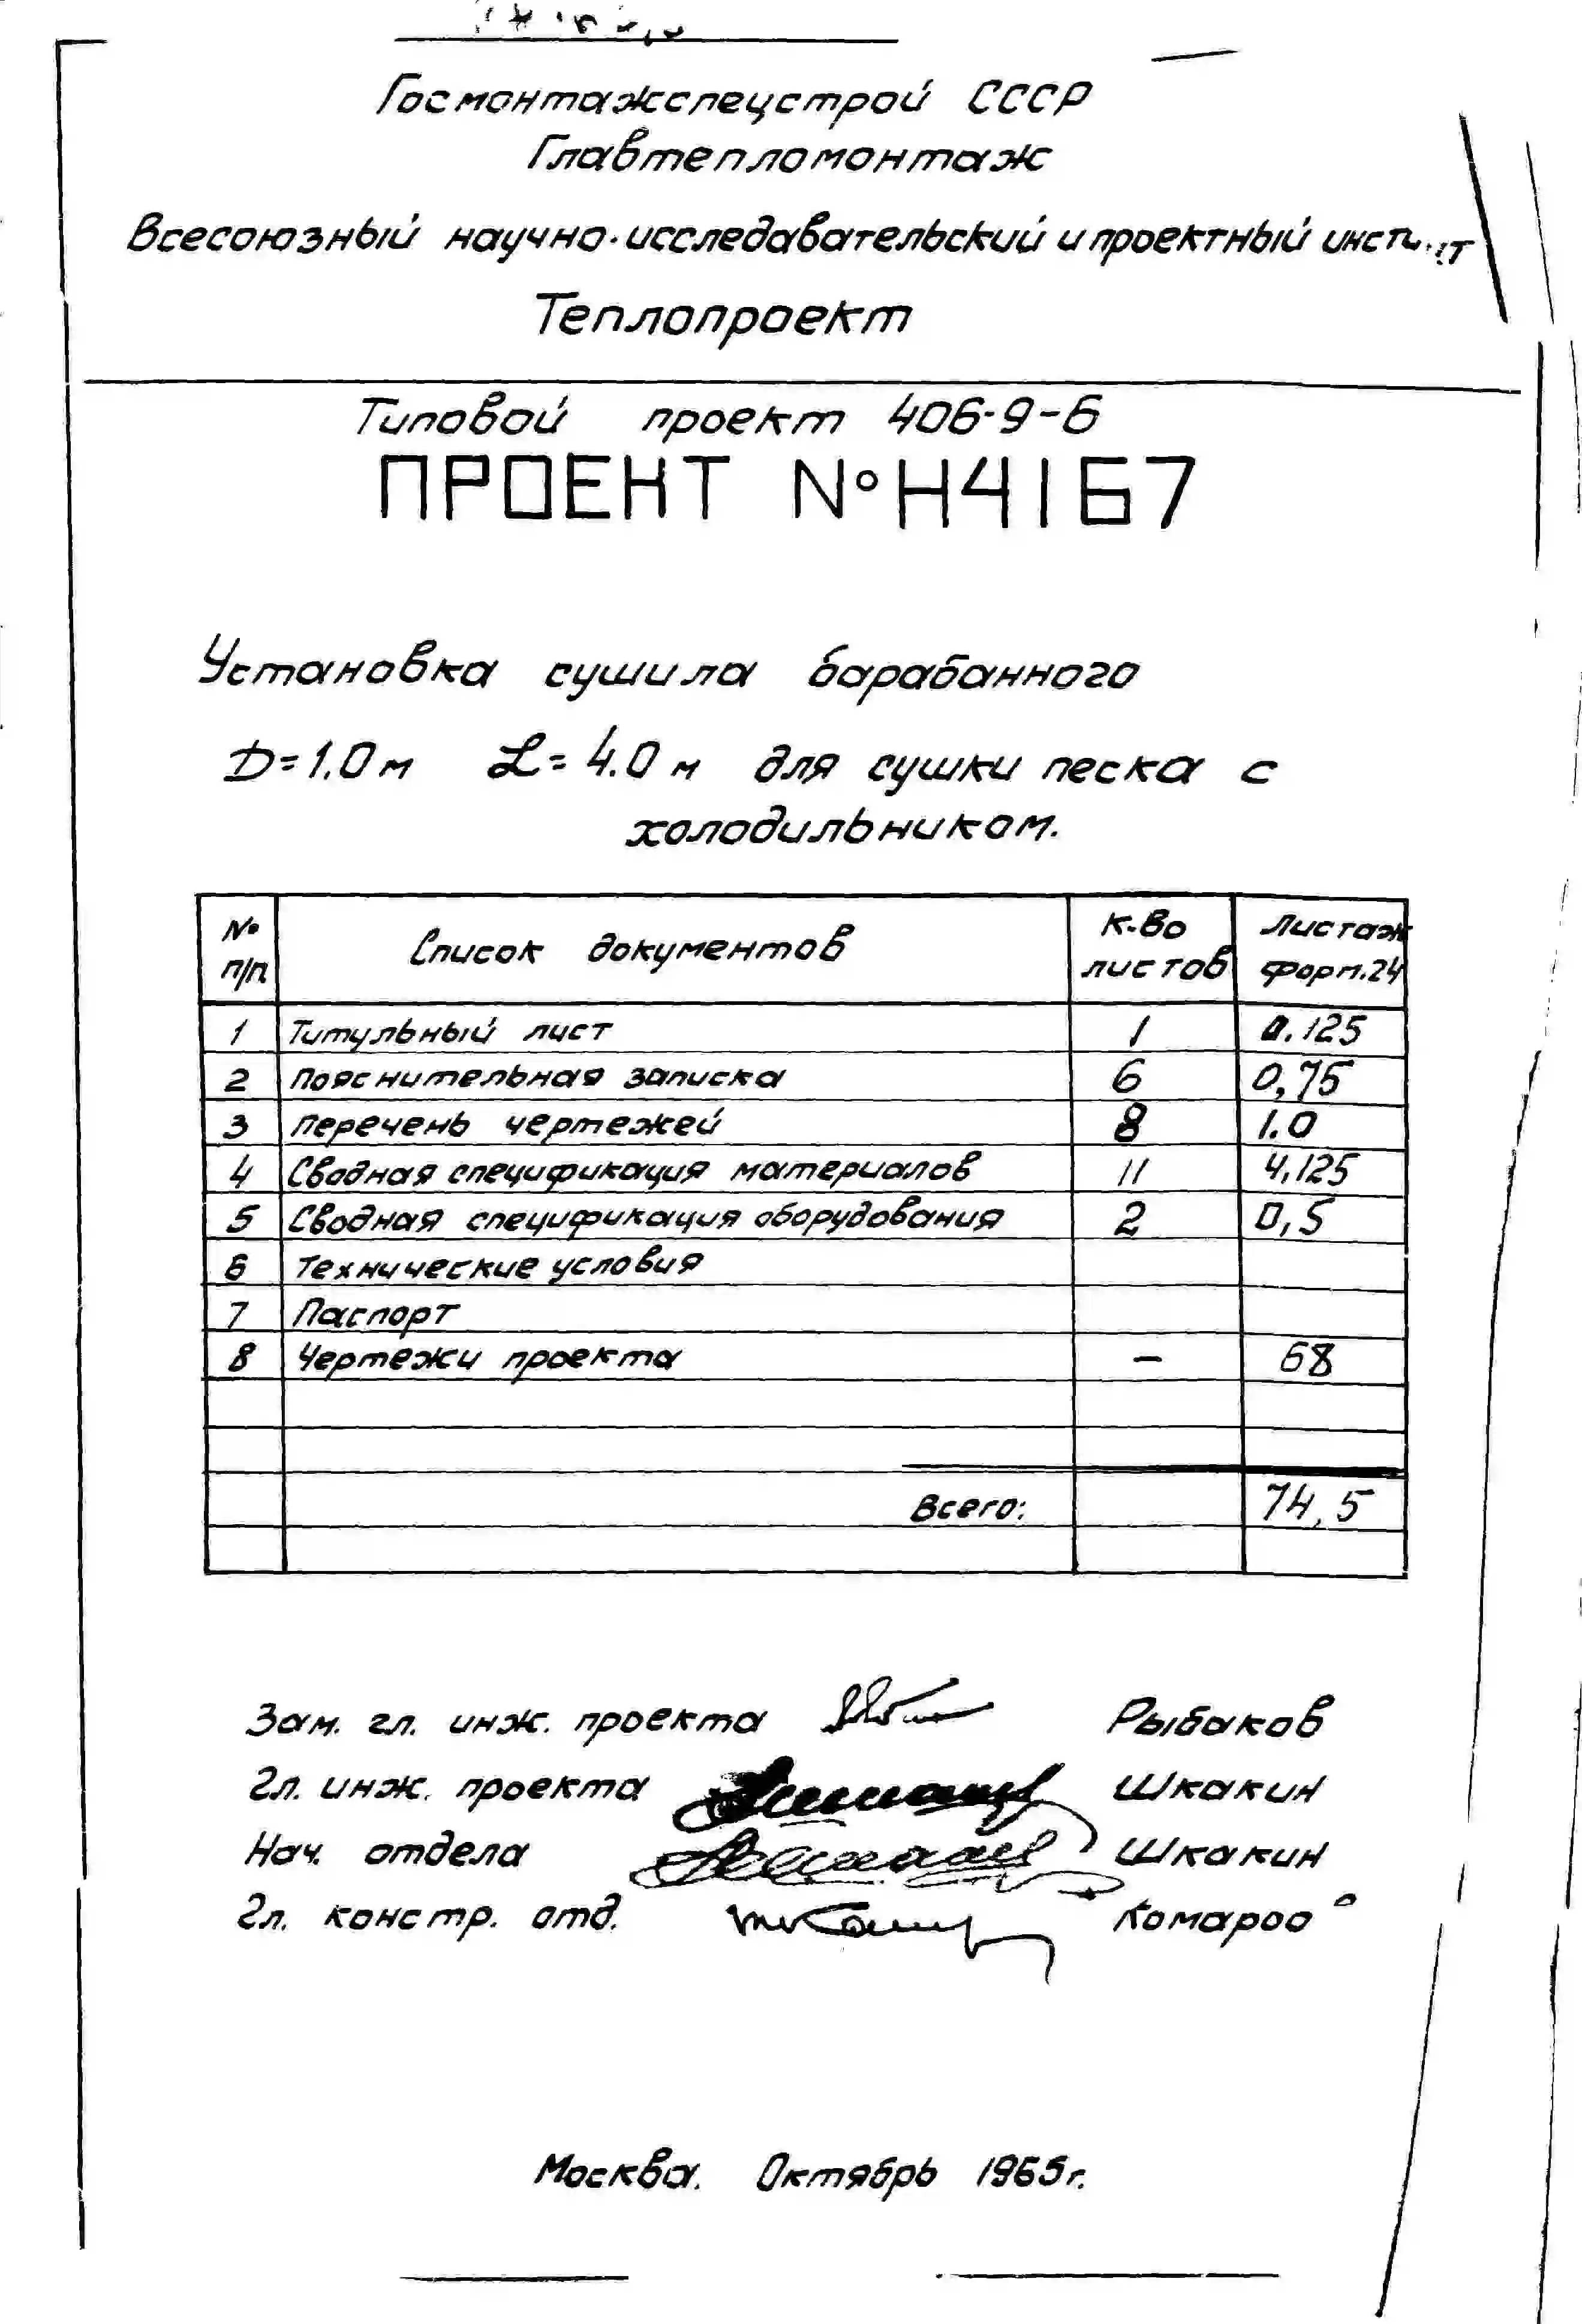 Госмонтажспецстрой СССР
Главтепломонтаж
Всесоюзный научно-исследавательский и проектный
Теплопроект
Типовой проект 406-9-6
ПРОЕКТ №Н4167
Установка сушила барабанного
D=1.0м L=4.0м для сушки песка с
холодильником.
№ п/п Список документов к-во листов Листаж форм.24
1 Титульный лист 1 0.125
2 Пояснительная записка 6 0,75
3 Перечень чертежей 8 1.0
4 Сводная спецификация материалов 11 4,125
5 Сводная спецификация оборудования 2 0,5
6 Технические условия
7 Паспорт
8 Чертежи проекта – 68
Всего: 74,5
Зам. гл. инж. проекта Рыбаков
Гл. инж. проекта Шкакин
Нач. отдела Шкакин
Гл. констр. отд. Комаров
Москва. Октябрь 1965г.